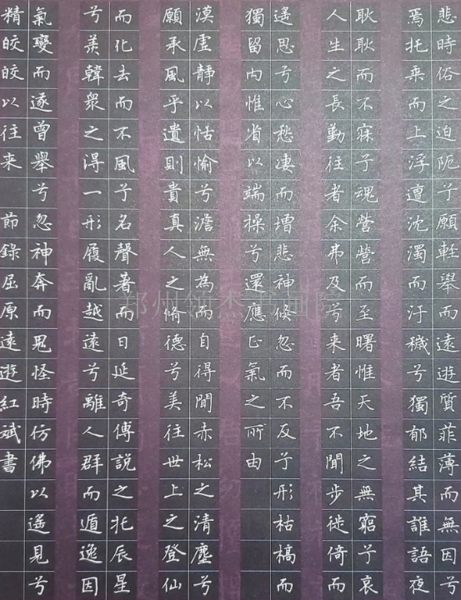 悲時俗之迫阨子願輕舉而遠遊質菲薄而無因
焉托乘而上浮遭沈濁而汙穢兮獨郁結其誰語夜
耿耿而不寐子魂營營而至曙惟天地之無窮子哀
人生之長勤往者余弗及兮來者吾不聞步徙倚而
遙思兮心愁凄而增悲神倏忽而不反子形枯槁而
獨留內惟省以端操兮還應正氣之所由
漠虛靜以恬愉兮澹無為而自得聞赤松之清塵兮
願承風乎遺則貴真人之脩德兮美往世上之登仙
而化去而不風子名聲著而日延奇傳說之托辰星
兮羨韓眾之得一形履亂越遠兮離人群而遁逸因
氣變而遂曾舉兮忽神奔而鬼怪時仿佛以遙見兮
精皎皎以往來 節錄屈原遠遊紅斌書
郑州领杰